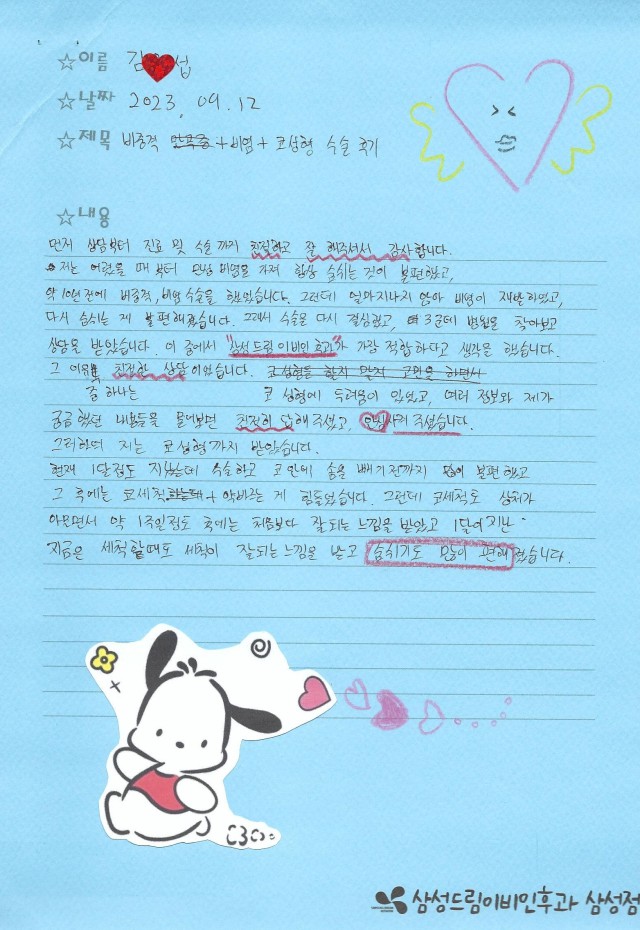 ☆이름 김 섭
☆날짜 2023. 09. 12
☆제목 비중격 만곡증 + 비염 + 코성형 수술 후기
☆내용
먼저 상담부터 진료 및 수술까지 친절하고 잘 해주셔서 감사합니다.
저는 어렸을 때부터 만성 비염을 가져 항상 숨쉬는 것이 불편했고,
약 10년전에 비중격, 비염수술을 했었습니다. 그런데 얼마지나지 않아 비염이 재발하였고,
다시 숨쉬는 게 불편해졌습니다. 그래서 수술을 다시 결심했고, 3군데 병원을 찾아보고
상담을 받았습니다. 이 중에서 "삼성드림이비인후과"가 가장 적합하다고 생각을 했습니다.
그 이유 친절한 상담이었습니다. 코성형을 할지 말지 고민을 하면서
중 하나는 코 성형에 두려움이 있었고, 여러 정보와 제가
궁금했던 내용들을 물어보면 친절히 답해주셨고, 안심시켜 주셨습니다.
그리하여 저는 코성형까지 받았습니다.
현재 1달정도 지났는데 수술하고 코안에 솜을 빼기전까지 많이 불편했고
그 후에는 코세척 하는데 + 약바르는 게 힘들었습니다. 그런데 코세척도 상처가
아물면서 약 1주일정도 후에는 처음보다 잘되는 느낌을 받았고 1달이 지난
지금은 세척할때도 세척이 잘되는 느낌을 받고 숨쉬기도 많이 편해졌습니다.
삼성드림이비인후과 삼성점